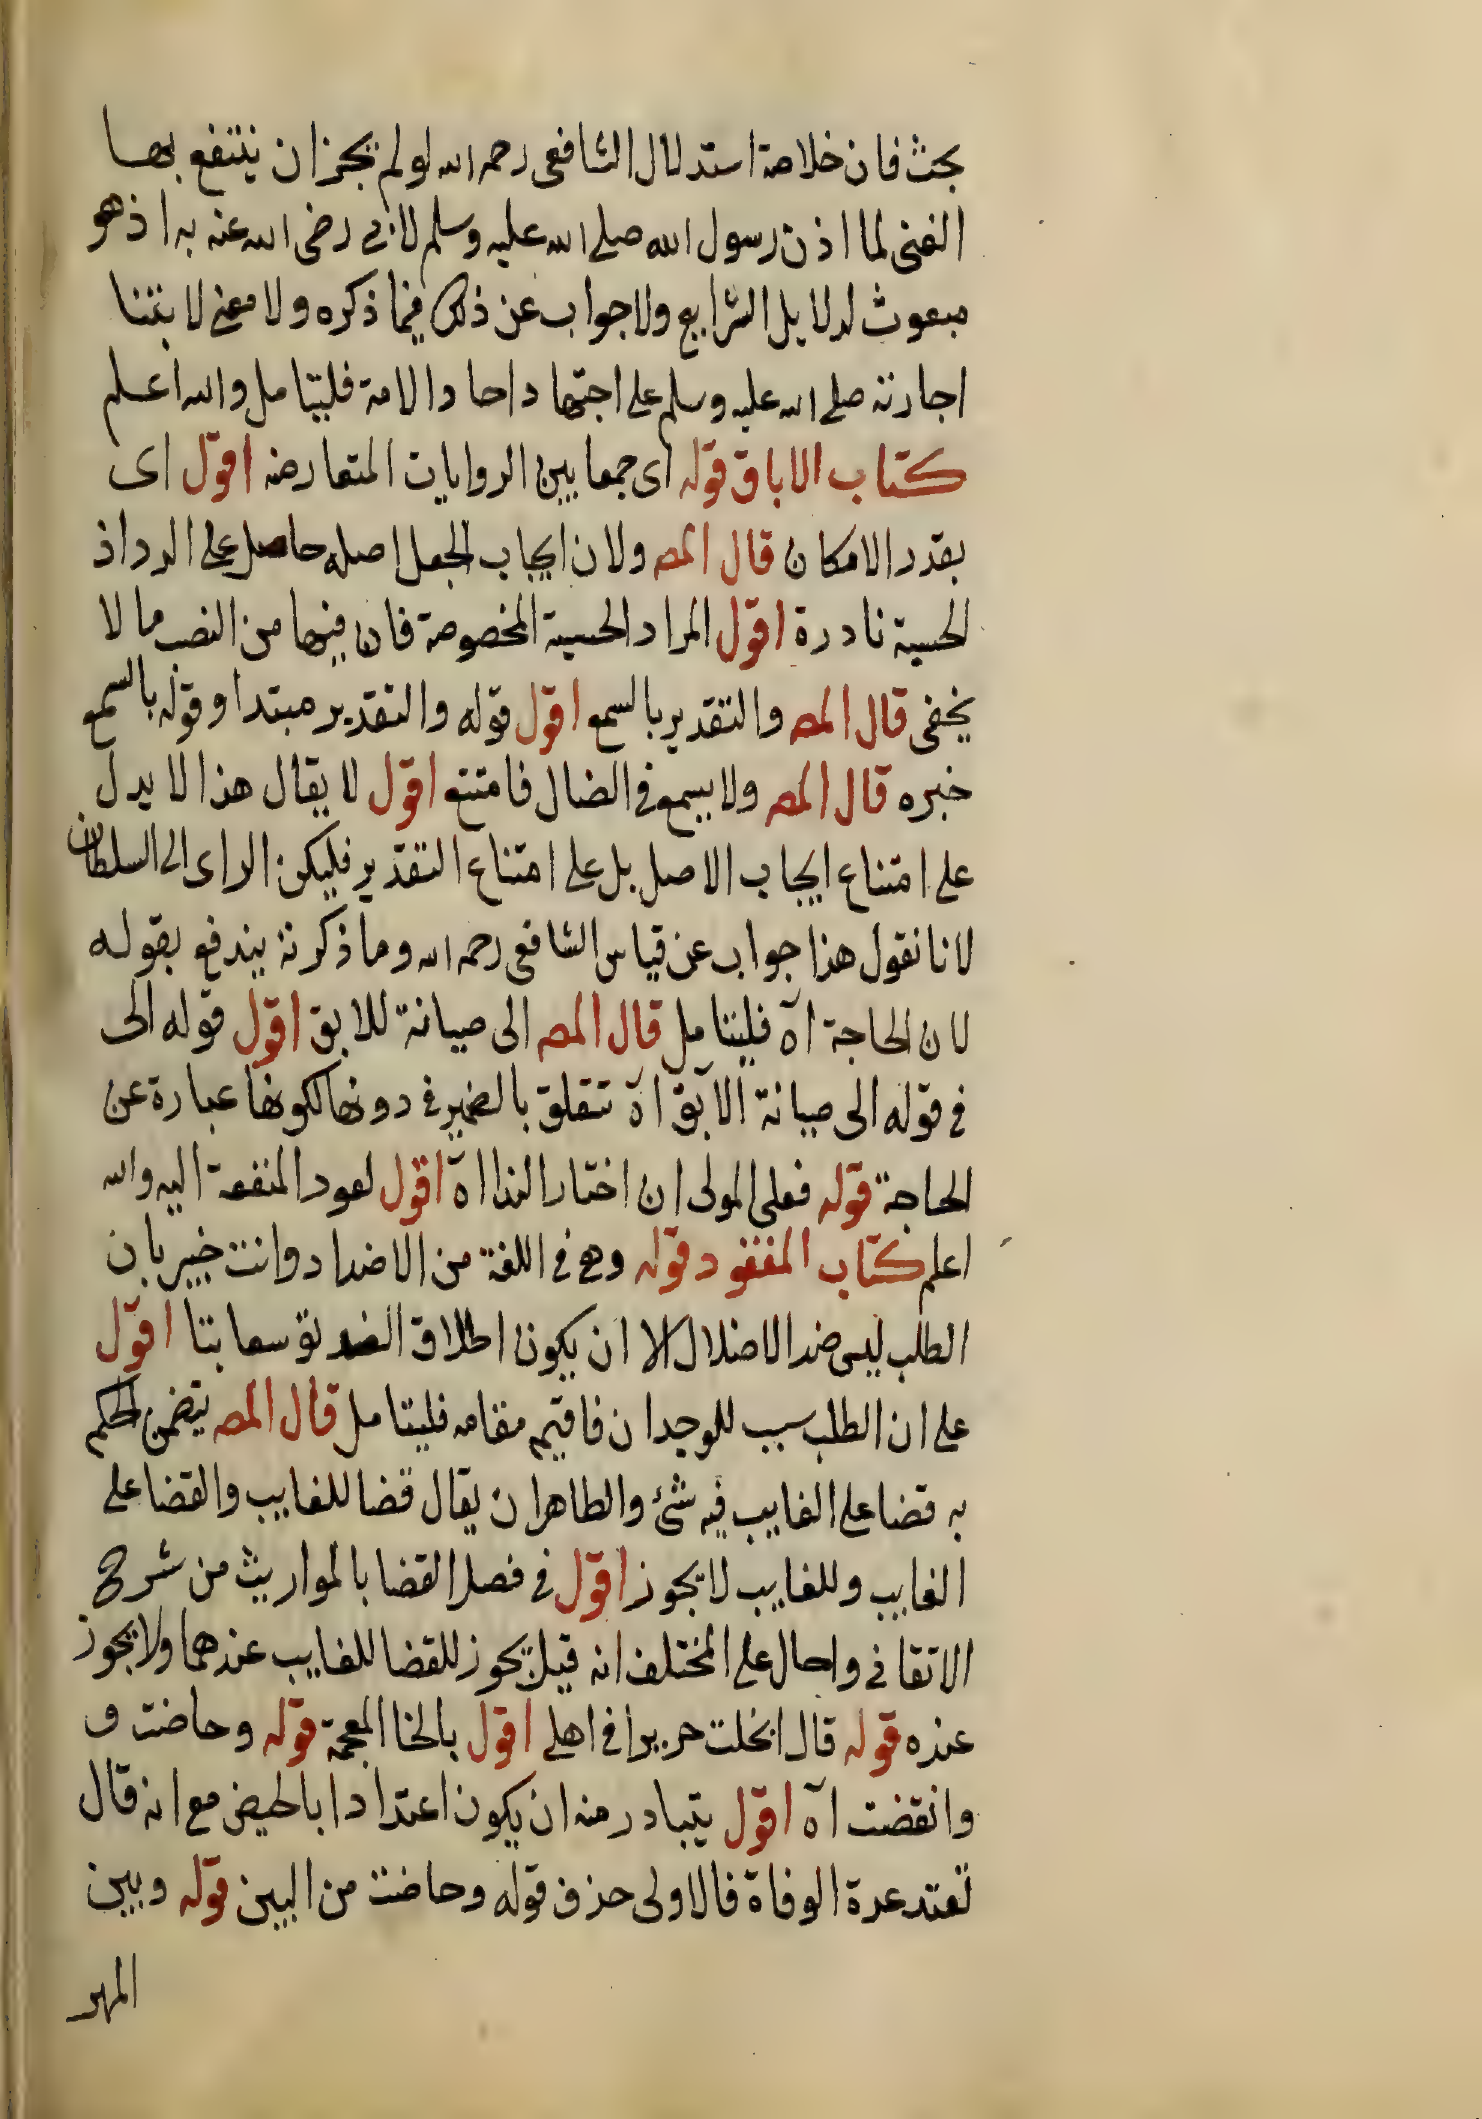 بحث فان خلاصة استدلال الشافعى رحمه الله لو لم يجز ان ينتفع بها
الغنى لما اذن رسول الله صلى الله عليه وسلم لابى رضى الله عنه به اذ هو
مبعوث لدلايل الشرايع ولا جواب عن ذلك فيما ذكره ولا معنى لابتنا
اجازته صلى الله عليه وسلم على اجتهاد احاد الامة فليتامل والله اعلم
كتاب الاباق قوله اى جمعا بين الروايات المتعارضه اقول اى
بقدر الامكان قال المصـ ولان ايجاب الجعل اصله حاصل على الرد اذ
الحسبة نادرة اقول المراد الحسبة المخصوصة فان فيها من النصب ما لا
يخفى قال المصـ والتقدير بالسمع اقول قوله والتقدير مبتدا وقوله بالسمع
خبره قال المصـ ولا يسمع فى الضال فامتنع اقول لا يقال هذا لا يدل
على امتناع ايجاب الاصل بل على امتناع التقدير فليكن الراى الى السلطان
لانا نقول هذا جواب عن قياس الشافعى رحمه الله وما ذكرته يندفع بقوله
لان الحاجة اه فليتامل قال المصـ الى صيانة للابق اقول قوله الى
فى قوله الى صيانة الآبق اه تتعلق بالضمير فى دونها لكونها عبارة عن
الحاجة قوله فعلى المولى ان اختار الفدا اه اقول لعود المنفعة اليه والله
اعلم كتاب المفقود قوله وهى فى اللغة من الاضداد وانت خبير بان
الطلب ليس ضد الاضلال الا ان يكون اطلاق الضد توسعا بتا اقول
على ان الطلب سبب للوجدان فاقيم مقامه فليتامل قال المصـ يتضمن الحكم
به قضا على الغايب فيه شئ والظاهر ان يقال قضا للغايب والقضا على
الغايب وللغايب لا يجوز اقول فى فصل القضا بالمواريث من شرح
الاتقانى واحال على المختلف انه قيل يجوز للقضا للغايب عندهما ولا يجوز
عنده قوله قال ابخلت حريرا فى اهلى اقول بالخا المعجمة قوله وحاضت و
وانقضت اه اقول يتبادر منه ان يكون اعتدادا بالحيض مع انه قال
تعتد عدة الوفاة فالاولى حذف قوله وحاضت من البين قوله وبين
المهر